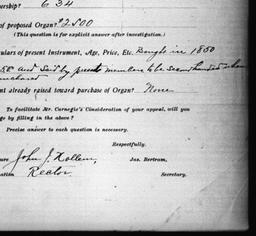 ership? 634
of proposed Organ? $2500
(This question is for explicit answer after investigation.)
culars of present Instrument, Age, Price, Etc. Bought in 1850
and said by present members to be second handed when
purchased
nt already raised toward purchase of Organ? None
To facilitate Mr. Carnegie's Consideration of your appeal, will you
ge by filling in the above?
Precise answer to each question is necessary.
Respectfully,
ure John J. Jas. Bertram,
ation Rector Secretary.